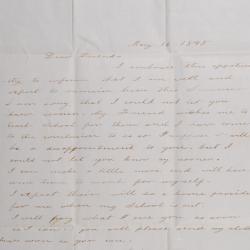 May 16 1848
Dear Friends
I embrace this opportu
nity to inform that I am well and
expect to remain here this Summer
I am sorry that I could not let you
know sooner. My Friend wishes me to
to be so I suppose it will
be a disappointment to you. but I
could not let you know any sooner.
I can make a little more and will have
for myself.
I expect their will be a home provided
for me when my School is out.
I will pay what I owe you as soon
as I can. you will please send my
as soon as you can.